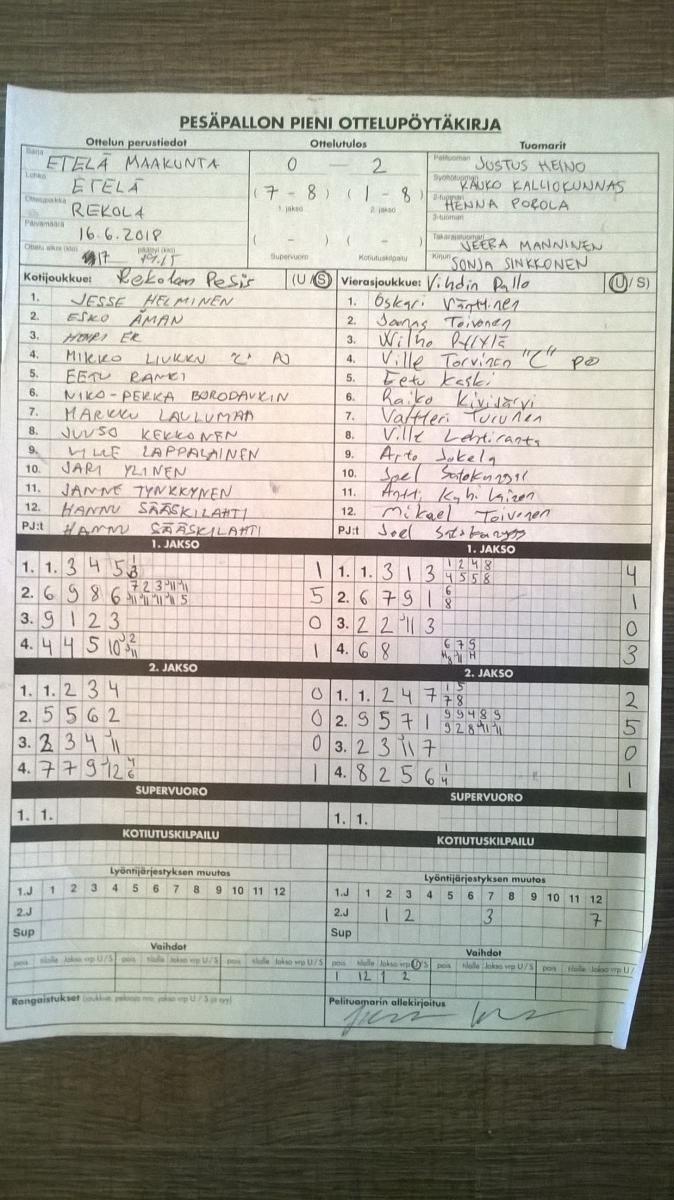 PESÄPALLON PIENI OTTELUPÖYTÄKIRJA
Ottelun perustiedot Ottelutulos Tuomarit
Sarja ETELÄ MAAKUNTA 0 — 2 Pelituomari JUSTUS HEINO
Lohko ETELÄ (7 - 8) (1 - 8) Syöttötuomari KAUKO KALLIOKUNNAS
Ottelupaikka REKOLA 1. jakso 2. jakso 2-tuomari HENNA POROLA
3-tuomari
Päivämäärä 16.6.2018 ( - ) ( - ) Takarajatuomari VEERA MANNINEN
Ottelu alkoi (klo) 17 päättyi (klo) Supervuoro Kotiutuskilpailu Kirjuri SONJA SINKKONEN
Kotijoukkue: Rekolan Pesis (U/S) Vierasjoukkue: Vihdin Pallo (U/S)
1. JESSE HELMINEN 1. Oskari Vänttinen
2. ESKO ÄMAN 2. Joonas Toivonen
3. HENRI ER 3. Wilho
4. MIKKO "C" 4. Ville Torvinen "C" PO
5. EETU RANKI 5. Eetu Kaski
6. NIKO-PEKKA BORODAVKIN 6. Raiko Kivijärvi
7. MARKKU LAULUMAA 7. Valtteri Turunen
8. JUUSO KEKKONEN 8. Ville Lehtiranta
9. VILLE LAPPALAINEN 9. Arto Jokela
10. JARI YLINEN 10. Joel
11. JANNE TYNKKYNEN 11. Antti
12. HANNU SÄÄSKILAHTI 12. Mikael Toivonen
PJ:t HANNU SÄÄSKILAHTI PJ:t Joel
1. JAKSO 1. JAKSO
1. 1. 3 4 5 1 1. 1. 3 1 3 1 2 4 8 4 5 5 8 4
2. 6 9 8 6 7 2 3 11 11 5 2. 6 7 9 1 6 8 1
3. 9 1 2 3 0 3. 2 2 11 3 0
4. 4 4 5 10 1 4. 6 8 6 7 9 3
2. JAKSO 2. JAKSO
1. 1. 2 3 4 0 1. 1. 2 4 7 1 5 7 8 2
2. 5 5 6 2 0 2. 9 5 7 1 9 9 4 8 9 9 2 8 11 11 5
3. 2 3 4 11 0 3. 2 3 11 7 0
4. 7 7 9 12 4 6 1 4. 8 2 5 6 1 4 1
SUPERVUORO SUPERVUORO
1. 1. 1. 1.
KOTIUTUSKILPAILU KOTIUTUSKILPAILU
Lyöntijärjestyksen muutos Lyöntijärjestyksen muutos
1.J 1 2 3 4 5 6 7 8 9 10 11 12 1.J 1 2 3 4 5 6 7 8 9 10 11 12
2.J 2.J 1 2 3 7
Sup Sup
Vaihdot Vaihdot
pois tilalle Jakso vrp U/S pois tilalle Jakso vrp U/S pois tilalle Jakso vrp U/S pois tilalle Jakso vrp U/S pois tilalle Jakso vrp U/S pois tilalle Jakso vrp U/
1 12 1 2
Rangaistukset Pelituomarin allekirjoitus